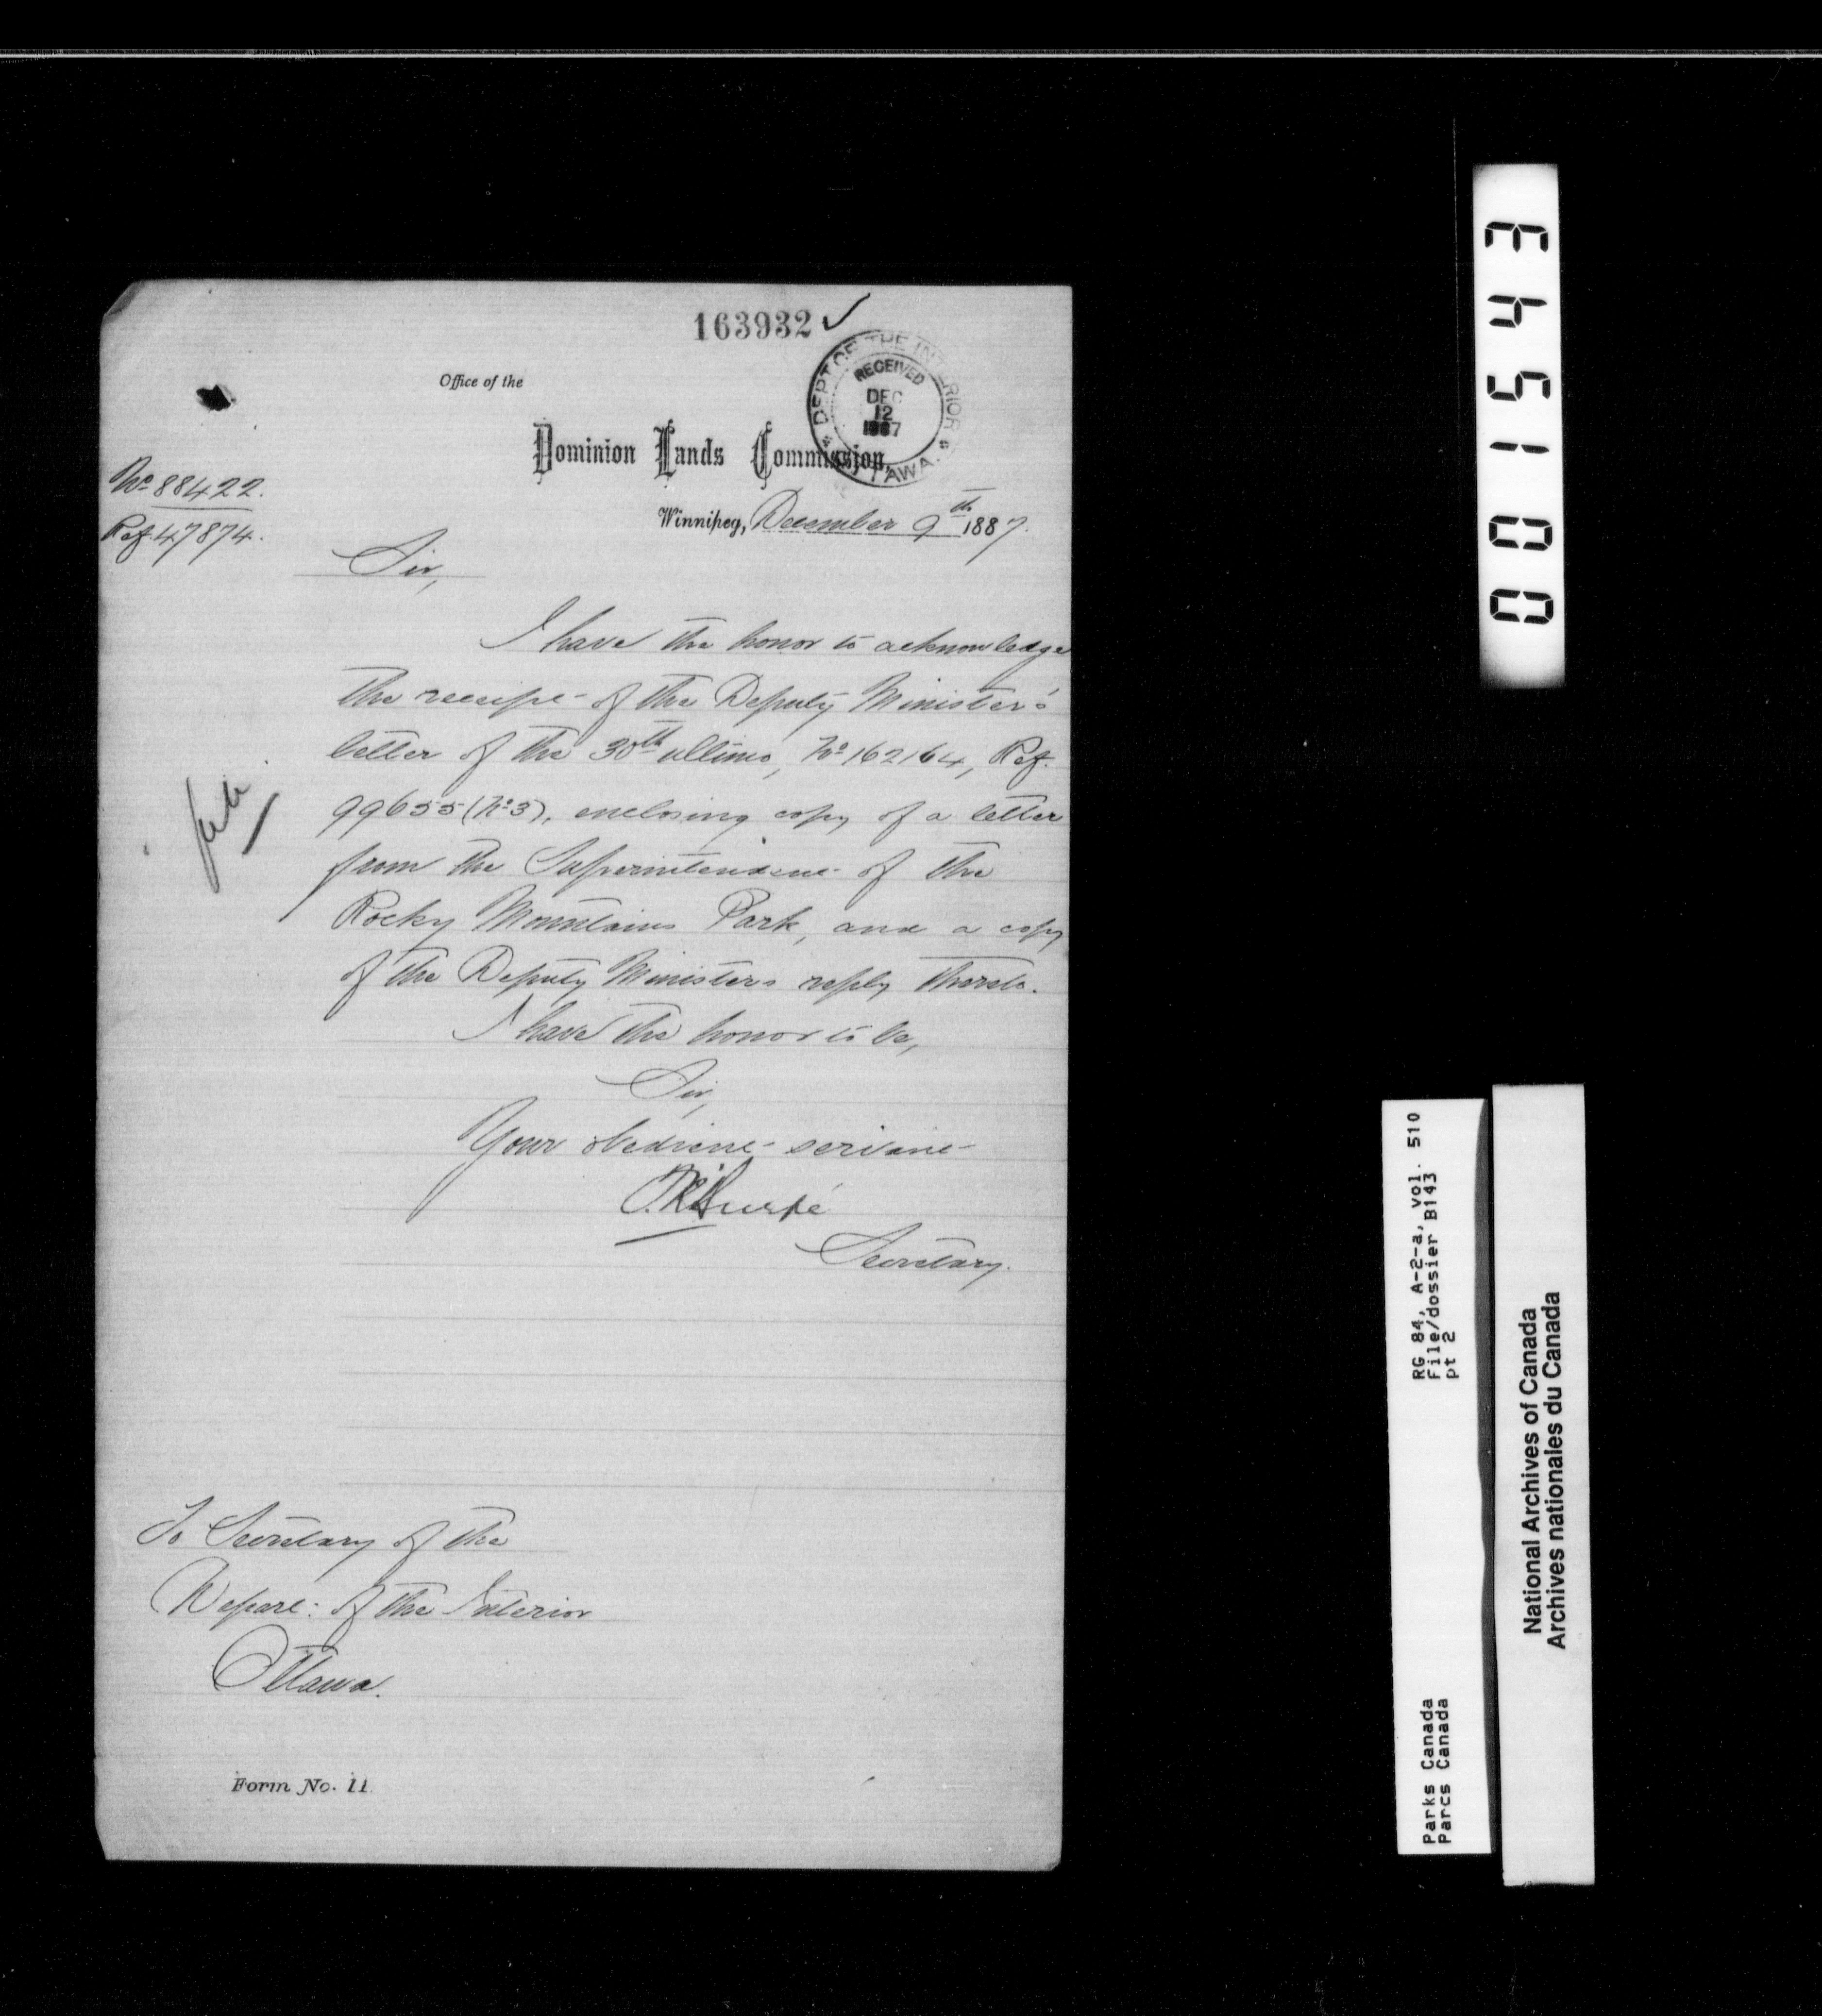 163932 ✓
DEPT OF THE INTERIOR
RECEIVED
DEC
12
1887
OTTAWA.
Office of the
Dominion Lands Commission,
Winnipeg, December 9th 1887.
No 88422.
Ref 47874.
Sir,
I have the honor to acknowledge
the receipt of the Deputy Minister's
letter of the 30th ultimo, No 162164, Ref.
99655 (No 3), enclosing copy of a letter
from the Superintendent of the
Rocky Mountains Park, and a copy
of the Deputy Ministers reply thereto.
I have the honor to be,
Sir,
Your obedient servant
Secretary.
To Secretary of the
Depart: of the Interior
Ottawa.
Form No. 11.
001543
RG 84, A-2-a, vol. 510
File/dossier B143
pt 2
Parks Canada
Parcs Canada
National Archives of Canada
Archives nationales du Canada